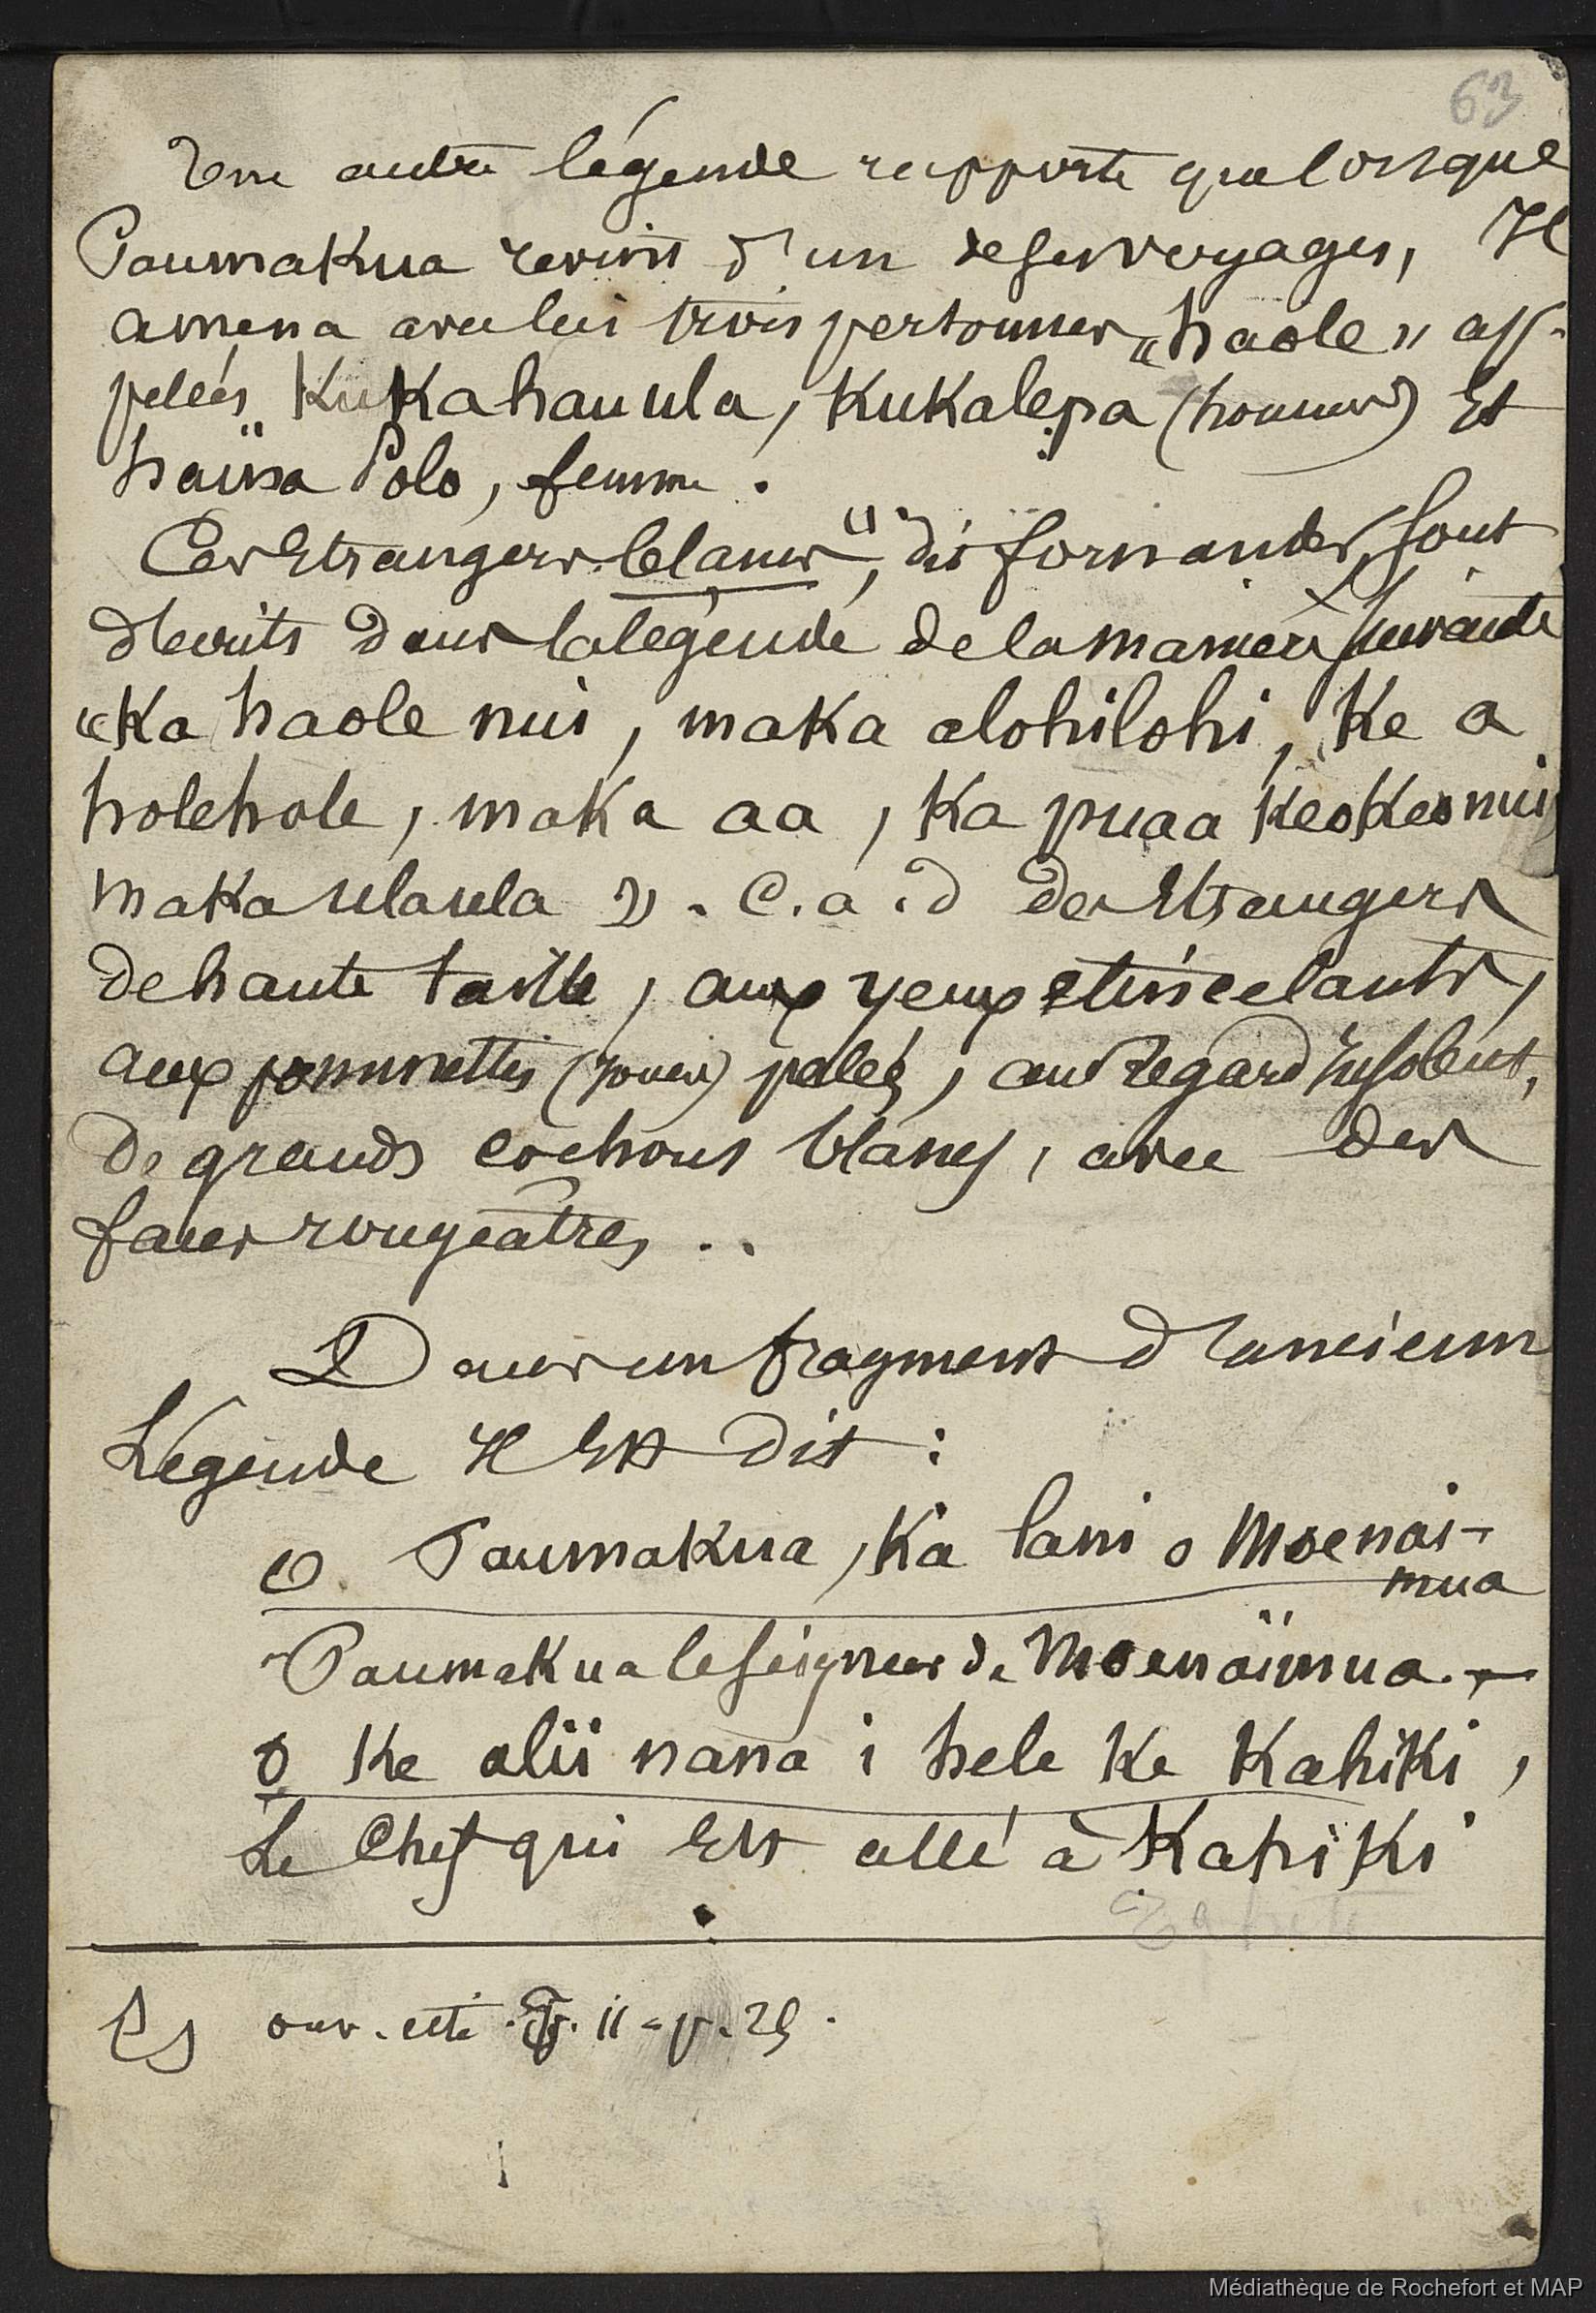 63
Une autre légende rapporte que lorsque
Paumakua revint d'un de ses voyages, Il
amena avec lui trois personnes "haole" ap-
pelées Kukahauula, Kukalepa (hommes) Et
haïna Polo, femme.
Ces Etrangers "blancs", dit fornander, sont
décrits dans la légende de la manière suivante
"Ka haole nui, maka alohilohi, Ke a
holehole, maka aa, Ka puaa KeoKeo nui
maka ulaula ". C.a.d des Etrangers
de haute taille, aux yeux etincelants,
aux pommettes (joues) palés, au regard insolent,
De grands cochons blancs, avec des
faces rougeâtres..
Dans un fragment d'ancienne
Légende Il Est dit :
O. Paumakua, Ka lani o Moenai-
mua
Paumakua le seigneur de Moenaïmua.-
O Ke alii nana i hele Ke Kahiki,
Le Chef qui Est allé à Kahiki
ouv. cité. T. II - p. 25.
Médiathèque de Rochefort et MAP